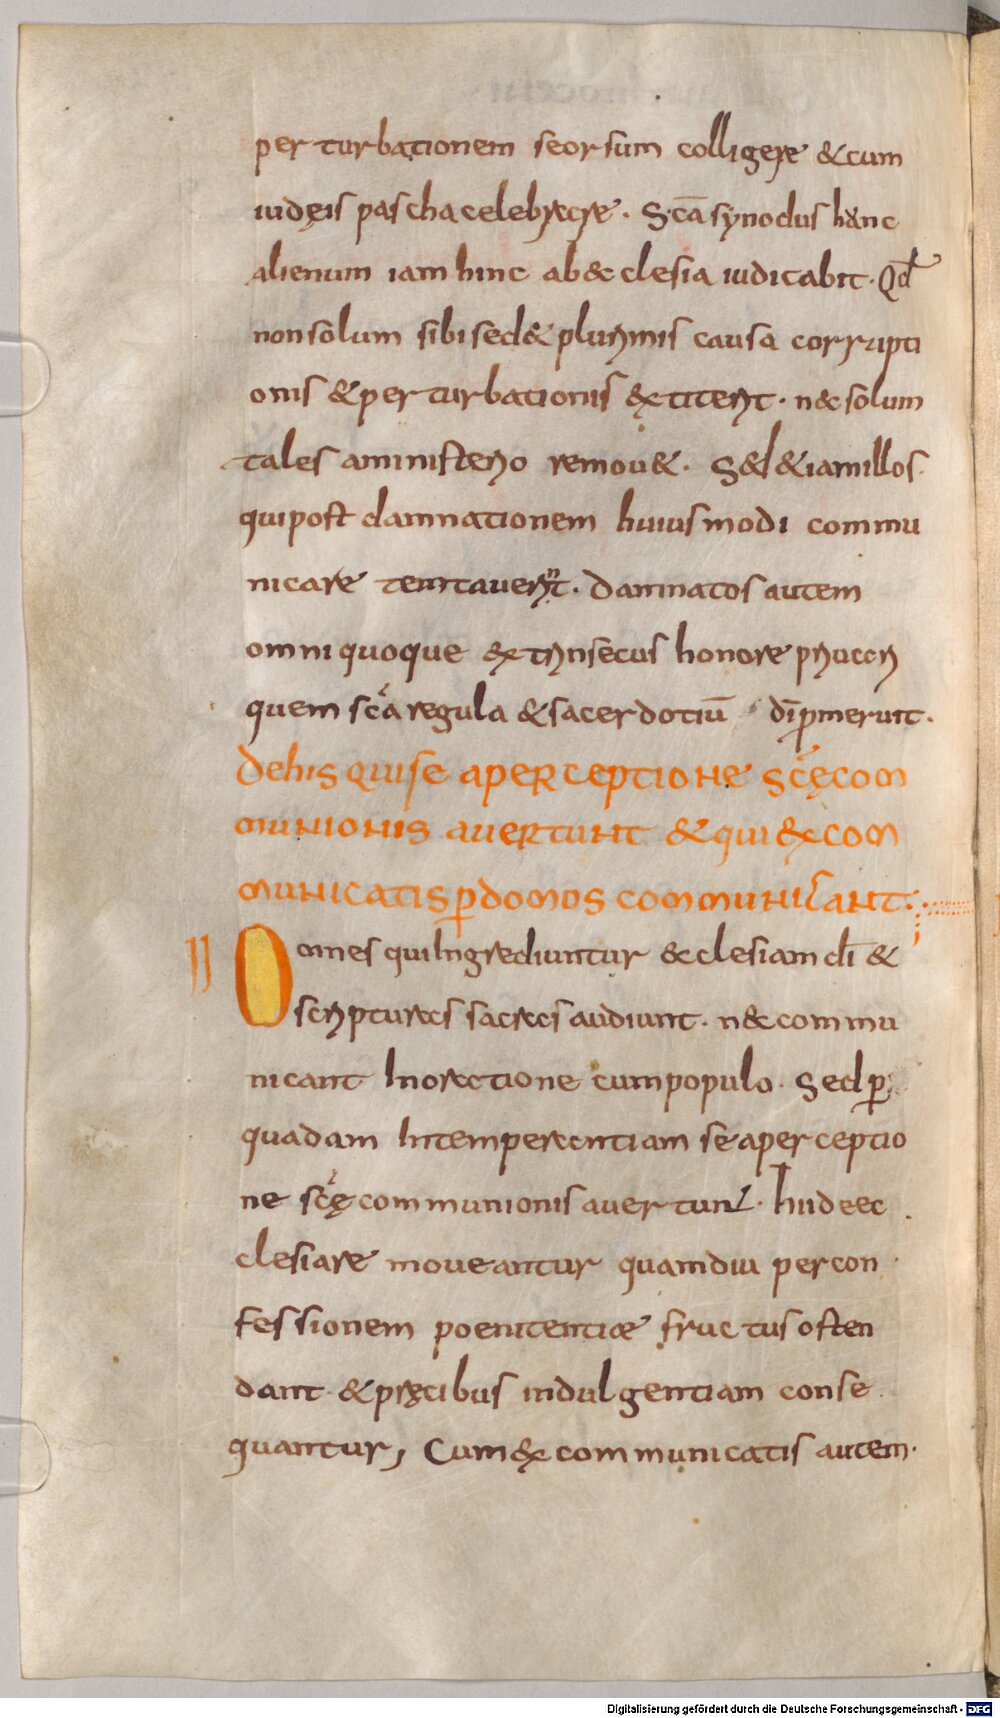 perturbationem seorsum colligere & cum
iudęis pascha celebrare. Sc̄a synodus hanc
alienum iam hinc ab &clesia iudicabit. Qd̄
non solum sibi sed & plurimis causa corrupti
onis & perturbationis &xtiterit. n&solum
tales aministerio remou&. Sed & iam illos
qui post damnationem huiusmodi commu
nicare temtauernt. Damnatos autem
omni quoque &xtrinsecus honore priuari
quem sc̄a regula & sacerdotiū dī pmeruit.
De his qui se a perceptione sc̄ę com
munionis auertunt & qui &xcom
municatis p domos communicant:
II Omnes qui ingrediuntur &cclesiam dī &
scripturas sacras audiunt. n& commu
nicant In oratione cum populo. Sed p
quadam Intemperantiam se a perceptio
ne sc̄ę communionis auertunt. hii de ec
clesia remoueantur quamdiu per con
fessionem poenitentiæ fructus osten
dant & pręcibus indulgentiam conse
quantur, Cum &xcommunicatis autem.
Digitalisierung gefördert durch die Deutsche Forschungsgemeinschaft - DFG